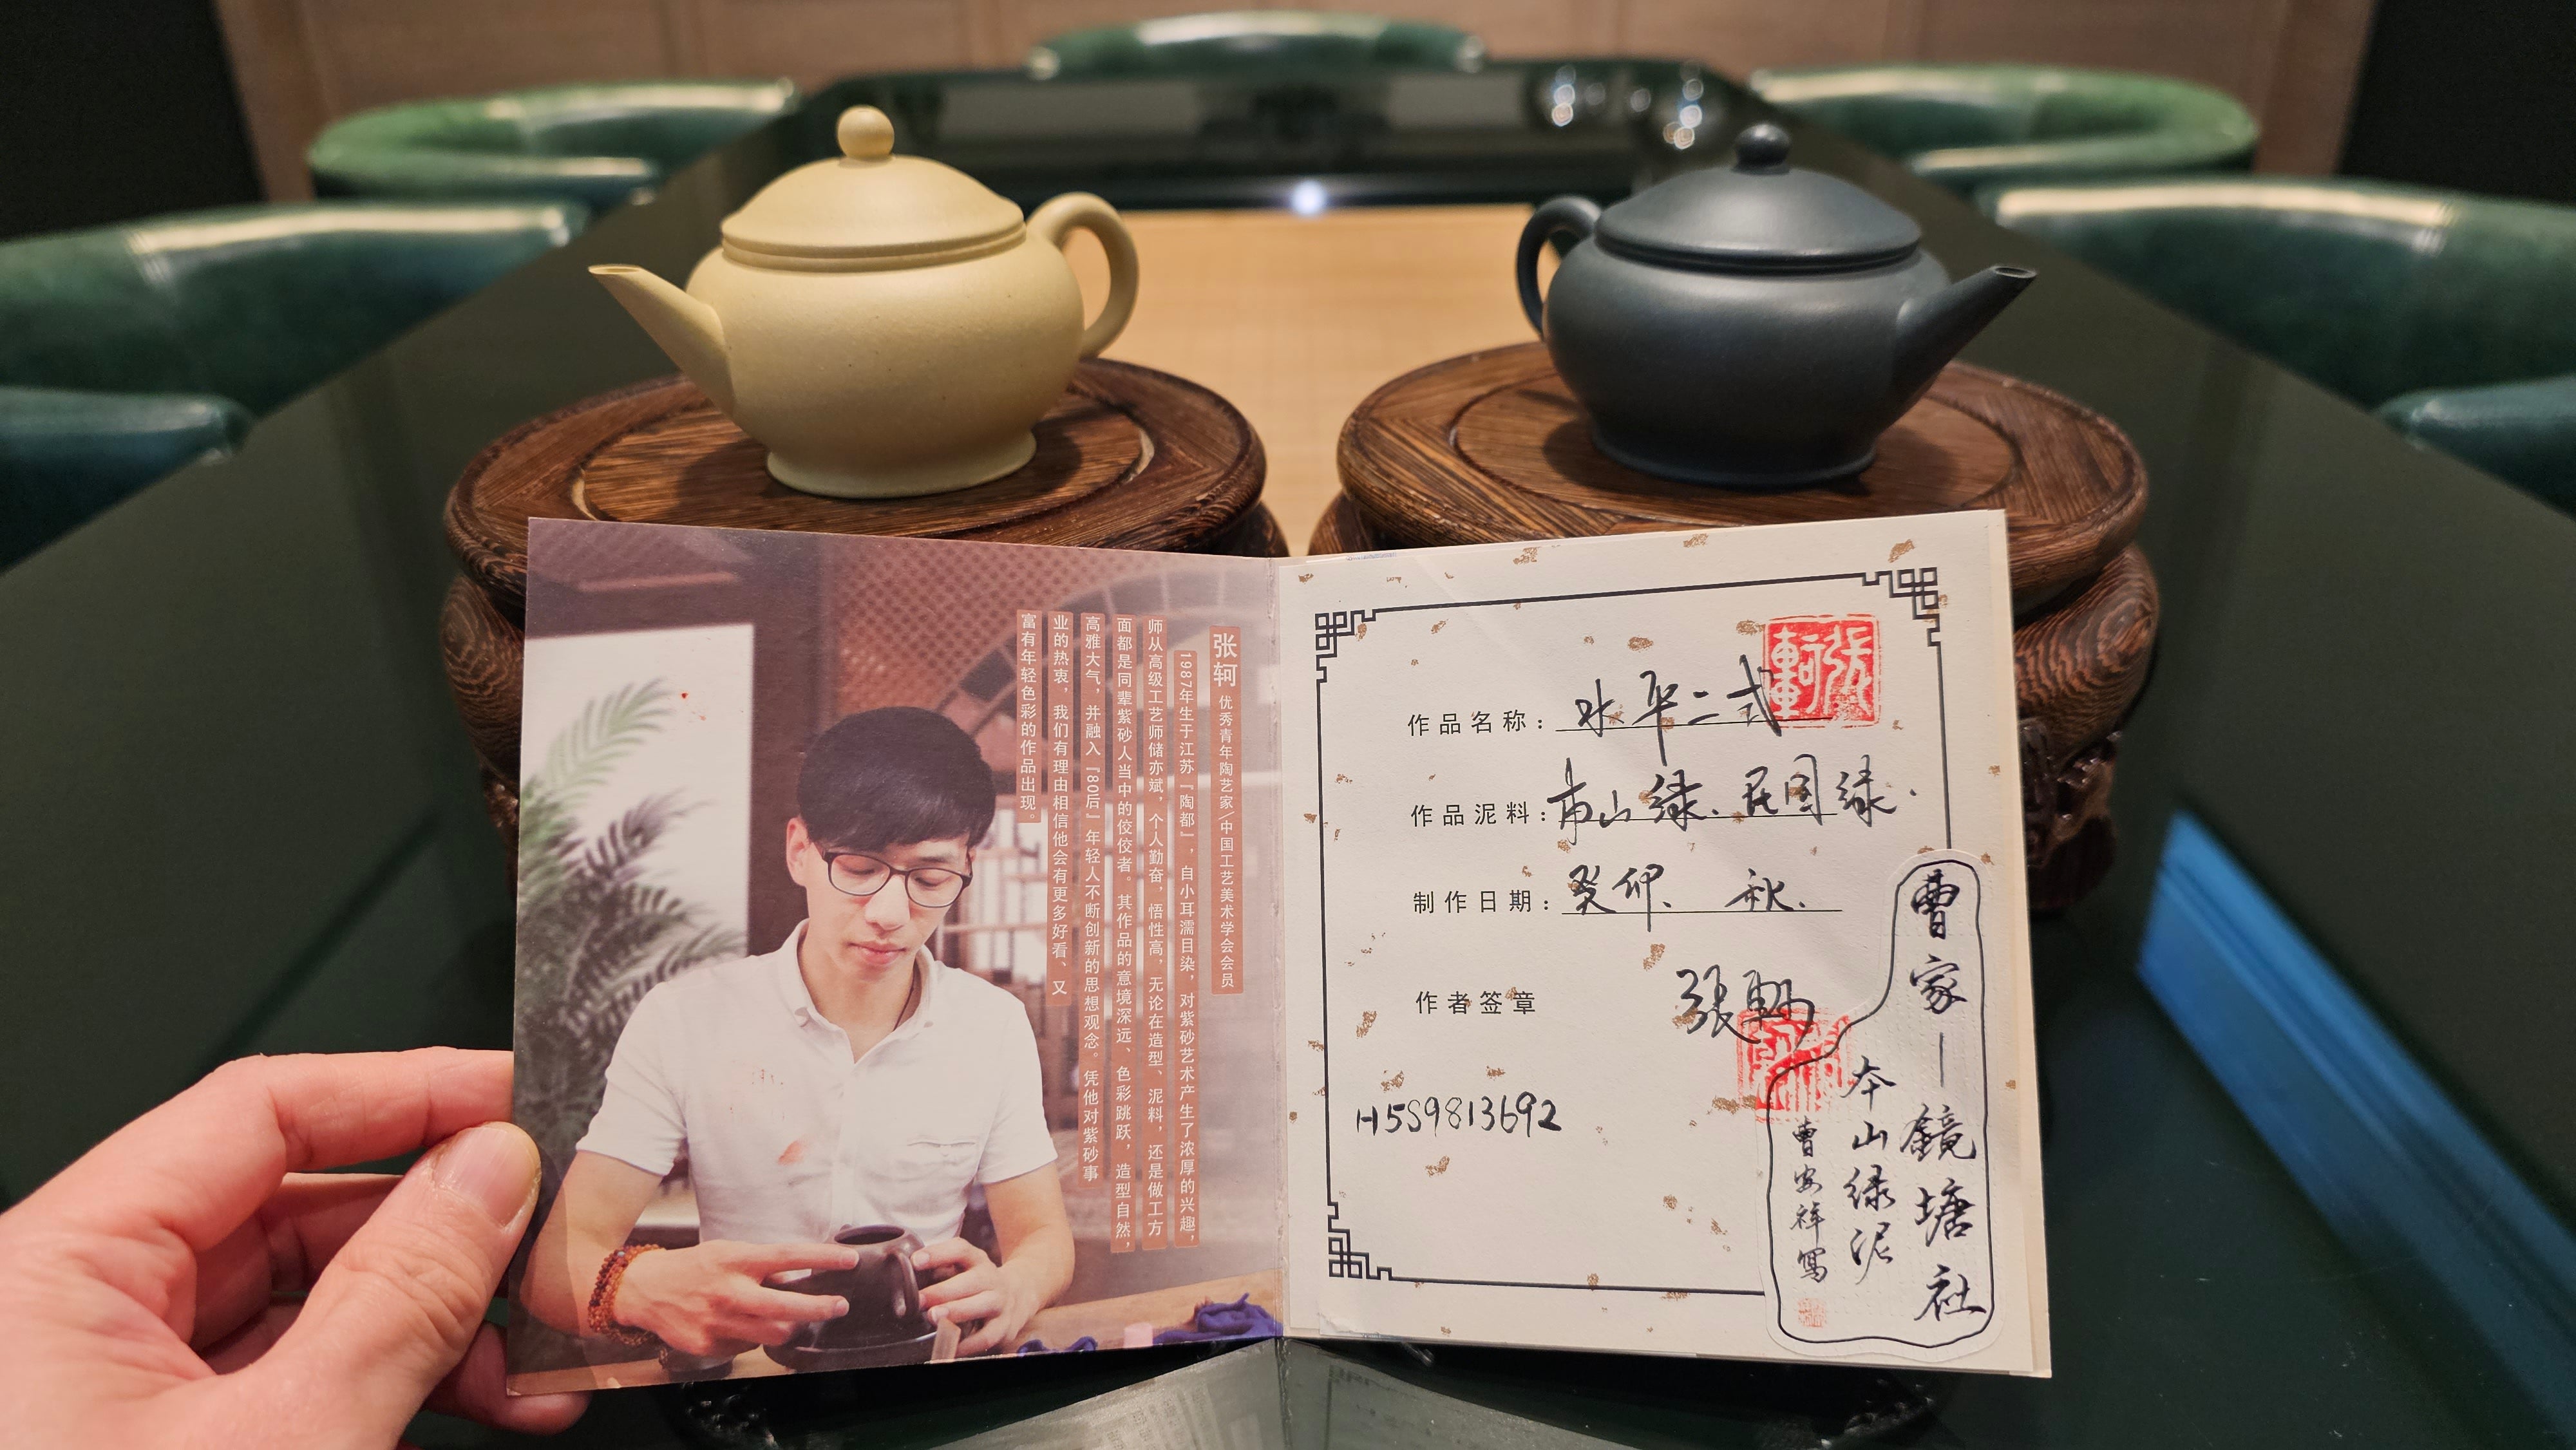 张轲 优秀青年陶艺家/中国工艺美术学会会员
1987年生于江苏『陶都』，自小耳濡目染，对紫砂艺术产生了浓厚的兴趣，
师从高级工艺师储亦斌，个人勤奋，悟性高，无论在造型、泥料，还是做工方
面都是同辈紫砂人当中的佼佼者。其作品的意境深远、色彩跳跃，造型自然，
高雅大气，并融入『80后』年轻人不断创新的思想观念。凭他对紫砂事
业的热衷，我们有理由相信他会有更多好看、又
富有年轻色彩的作品出现。
作品名称：水平二式
作品泥料：本山绿.民国绿.
制作日期：癸卯.秋.
作者签章 張軻
H5S9813692
曹家—鏡塘社
本山绿泥
曹安祥寫